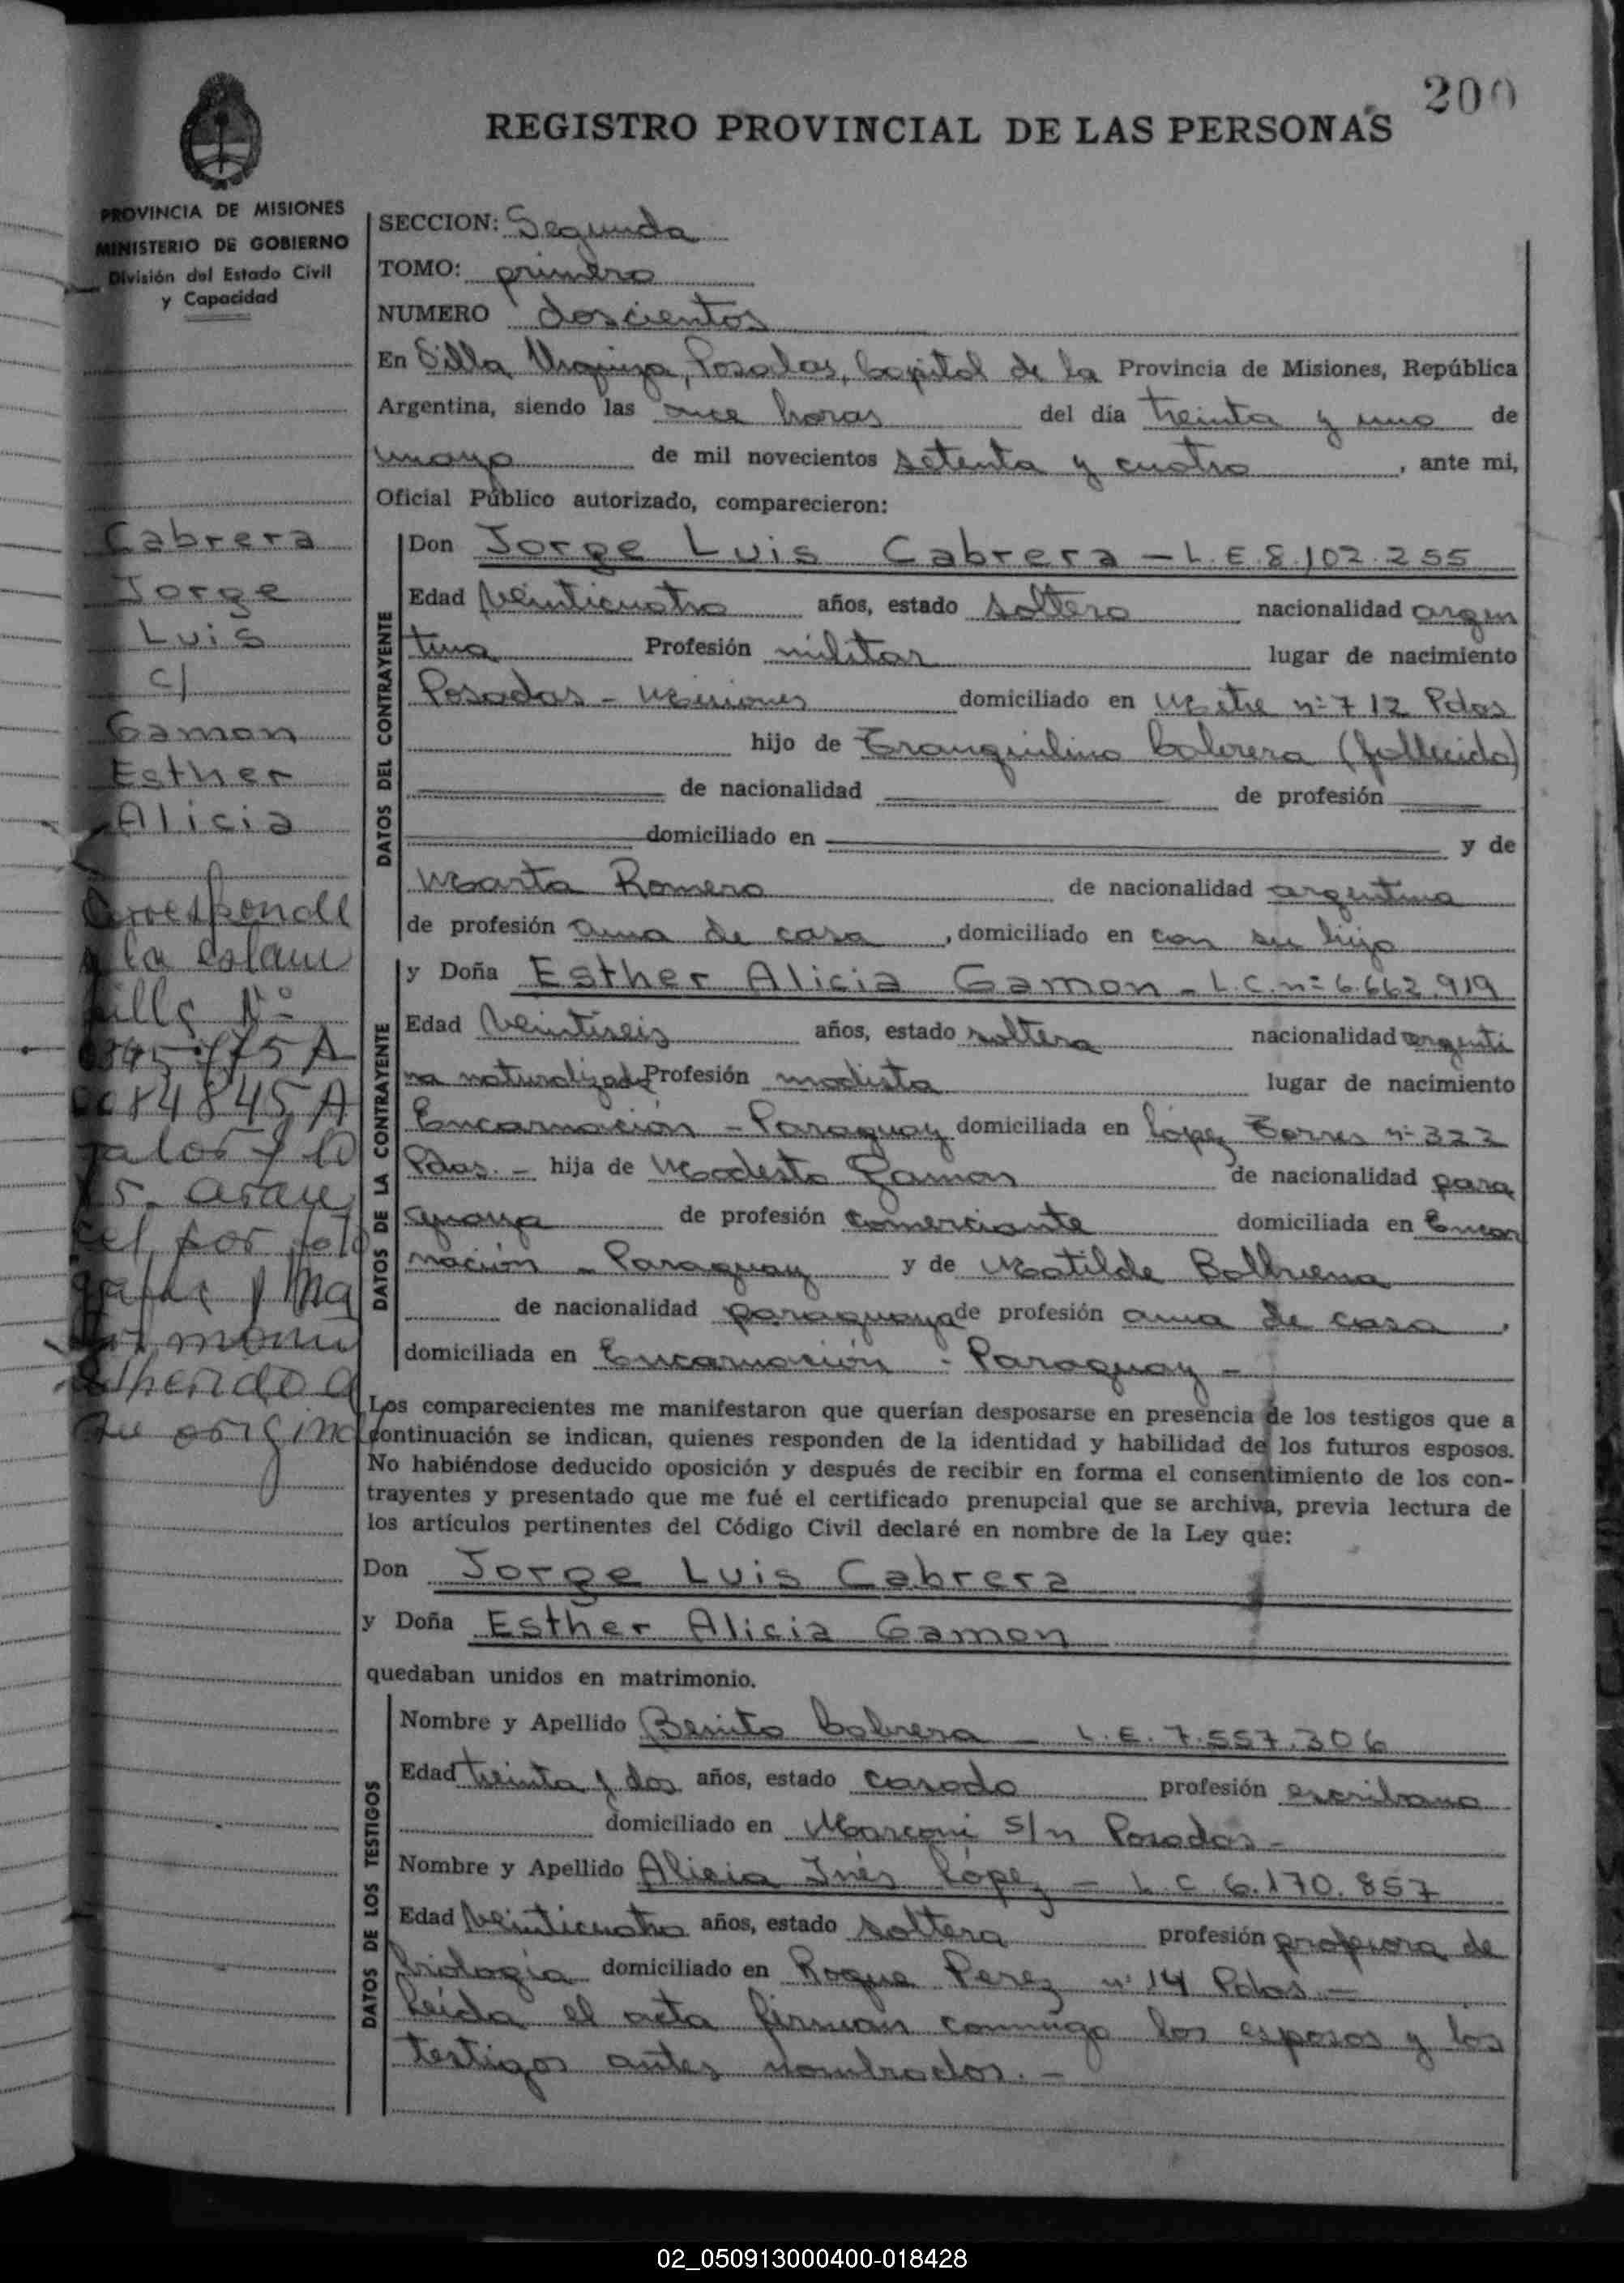 200
REGISTRO PROVINCIAL DE LAS PERSONAS
PROVINCIA DE MISIONES
MINISTERIO DE GOBIERNO
División del Estado Civil
y Capacidad
SECCION: Segunda
TOMO: primero
NUMERO doscientos
En Villa Urquiza, Posadas, Capital de la Provincia de Misiones, República
Argentina, siendo las once horas del día treinta y uno de
mayo de mil novecientos setenta y cuatro, ante mi,
Oficial Público autorizado, comparecieron:
Cabrera
Jorge
Luis
c/
Gamon
Esther
Alicia
DATOS DEL CONTRAYENTE
Don Jorge Luis Cabrera - L.E. 8.102.255
Edad veinticuatro años, estado soltero nacionalidad argen
tina Profesión militar lugar de nacimiento
Posadas - Misiones domiciliado en Mitre nº 712 Pdas
hijo de Tranquilino Cabrera (fallecido)
de nacionalidad de profesión
domiciliado en y de
Marta Romero de nacionalidad argentina
de profesión ama de casa, domiciliado en con su hijo
Corresponde
a la estam
pilla Nº
0084845 A
DATOS DE LA CONTRAYENTE
y Doña Esther Alicia Gamon - L.C. nº 6.662.919
Edad veintiseis años, estado soltera nacionalidad argenti
na naturalizada Profesión modista lugar de nacimiento
Encarnación - Paraguay domiciliada en López Torres nº 322
Pdas. - hija de Modesto Gamon de nacionalidad para
guaya de profesión comerciante domiciliada en Encar
nación - Paraguay y de Matilde Balbuena
de nacionalidad paraguaya de profesión ama de casa,
domiciliada en Encarnación - Paraguay -
su origina
Los comparecientes me manifestaron que querían desposarse en presencia de los testigos que a
continuación se indican, quienes responden de la identidad y habilidad de los futuros esposos.
No habiéndose deducido oposición y después de recibir en forma el consentimiento de los con-
trayentes y presentado que me fué el certificado prenupcial que se archiva, previa lectura de
los artículos pertinentes del Código Civil declaré en nombre de la Ley que:
Don Jorge Luis Cabrera
y Doña Esther Alicia Gamon
quedaban unidos en matrimonio.
DATOS DE LOS TESTIGOS
Nombre y Apellido Benito Cabrera - L.E. 7.557.306
Edad treinta y dos años, estado casado profesión escribano
domiciliado en Marconi s/n Posadas -
Nombre y Apellido Alicia Inés López - L.C. 6.170.857
Edad veinticuatro años, estado soltera profesión profesora de
biología domiciliado en Roque Perez nº 14 Pdas. -
Leída el acta firman conmigo los esposos y los
testigos antes nombrados. -
02_050913000400-018428